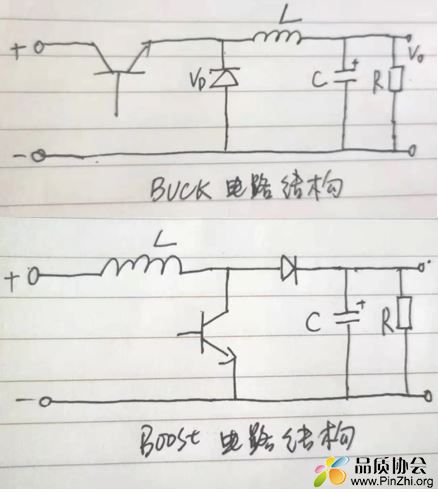 L
+
VD
C
+
R
Vo
-
BUCK 电路结构
L
+
C
+
R
-
Boost 电路结构
品质协会
www.PinZhi.org